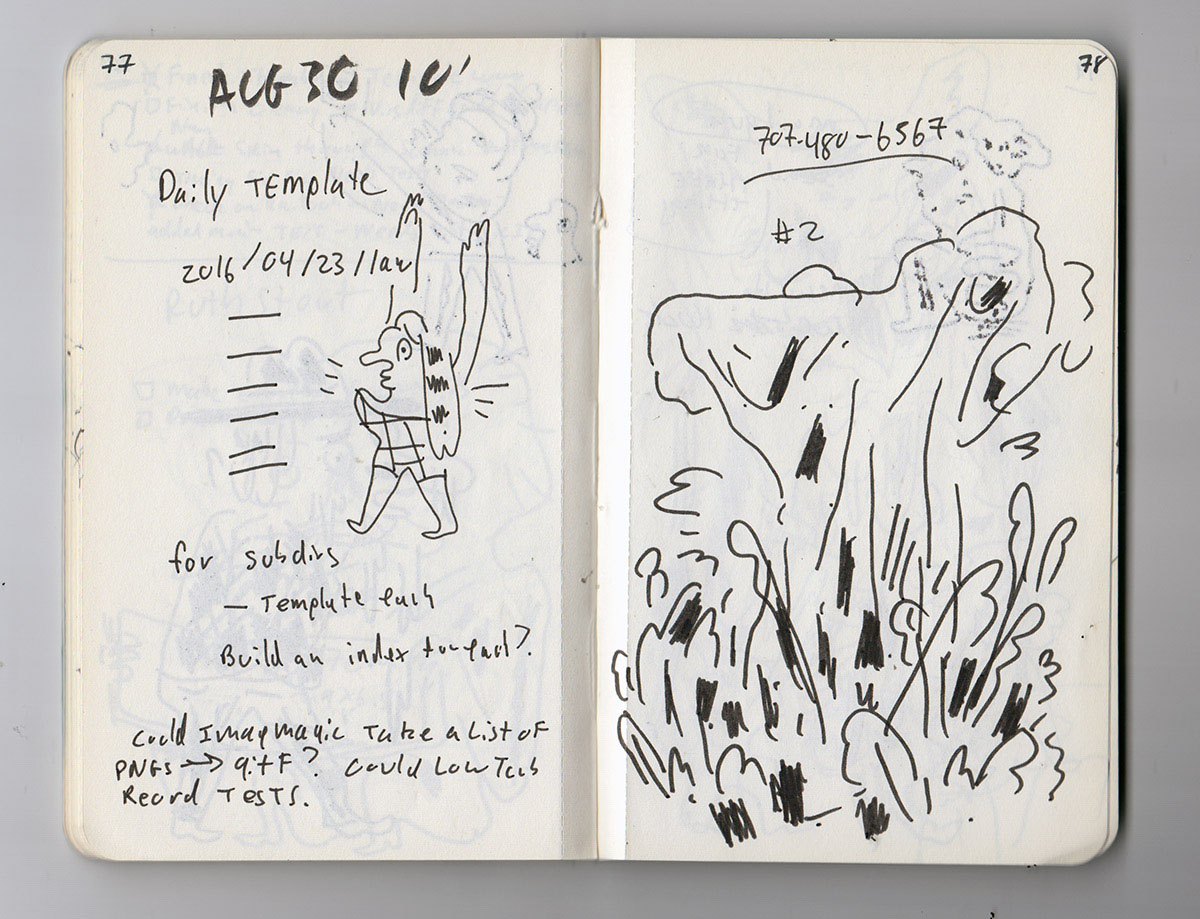 77
AUG 30 16'
Daily Template
2016/04/23/law
for subdirs
— Template each
Build an index for each?
Could Imagmagic Take a List of
PNGs → gif? Could Low Tech
Record Tests.
78
707-480-6567
#2